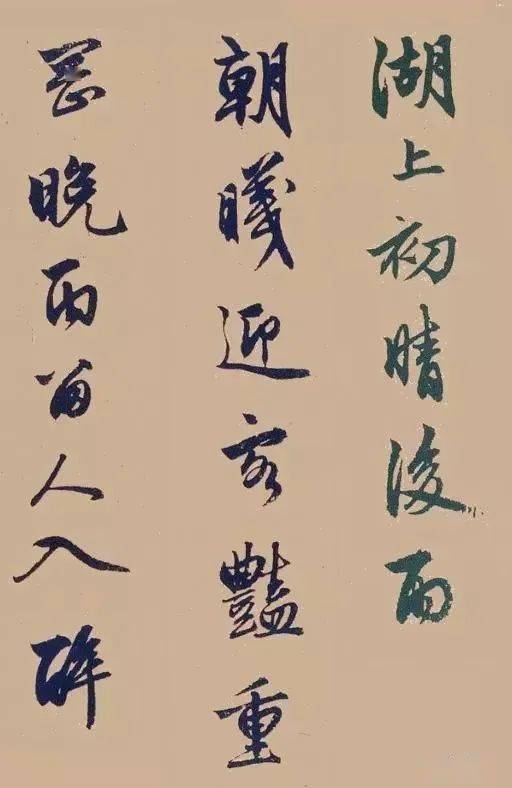 湖上初晴後雨
朝曦迎客豔重
岡晚雨留人入醉